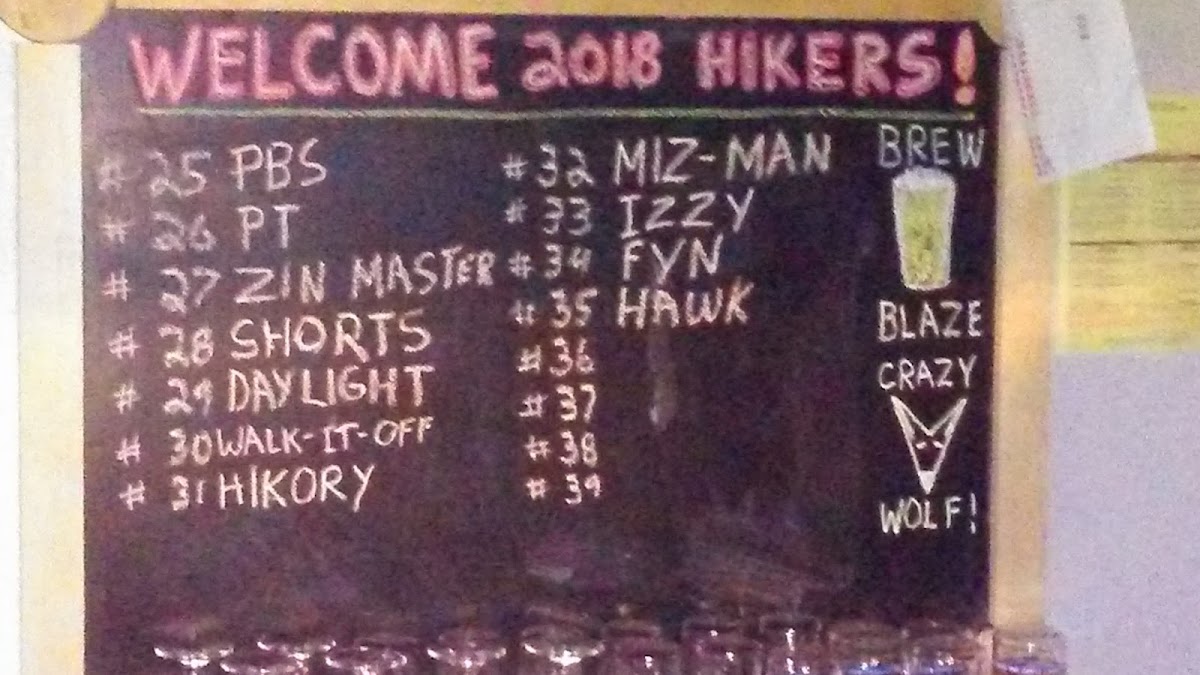 WELCOME 2018 HIKERS!
# 25 PBS
# 26 PT
# 27 ZIN MASTER
# 28 SHORTS
# 29 DAYLIGHT
# 30 WALK-IT-OFF
# 31 HIKORY
# 32 MIZ-MAN
# 33 IZZY
# 34 FYN
# 35 HAWK
# 36
# 37
# 38
# 39
BREW
BLAZE
CRAZY
WOLF!